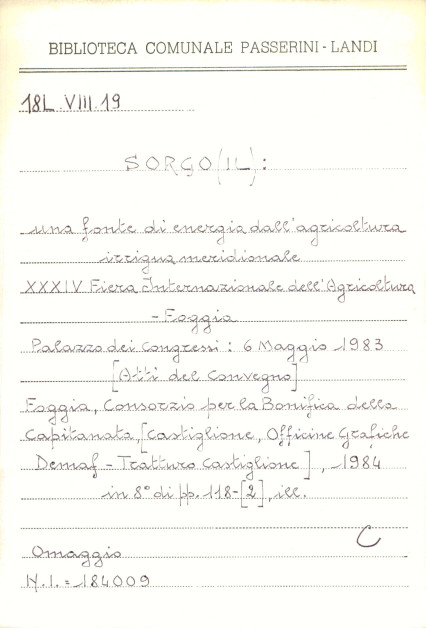 BIBLIOTECA COMUNALE PASSERINI-LANDI
18L.VIII.19
SORGO (IL):
una fonte di energia dall'agricoltura
irrigua meridionale
XXXIV Fiera Internazionale dell'Agricoltura
- Foggia
Palazzo dei Congressi: 6 Maggio 1983
[Atti del Convegno]
Foggia, Consorzio per la Bonifica della
Capitanata, [Castiglione, Officine Grafiche
Demaf - Tratturo Castiglione], 1984
in 8° di pp. 118-[2], ill.
C
Omaggio
N.I. = 184009